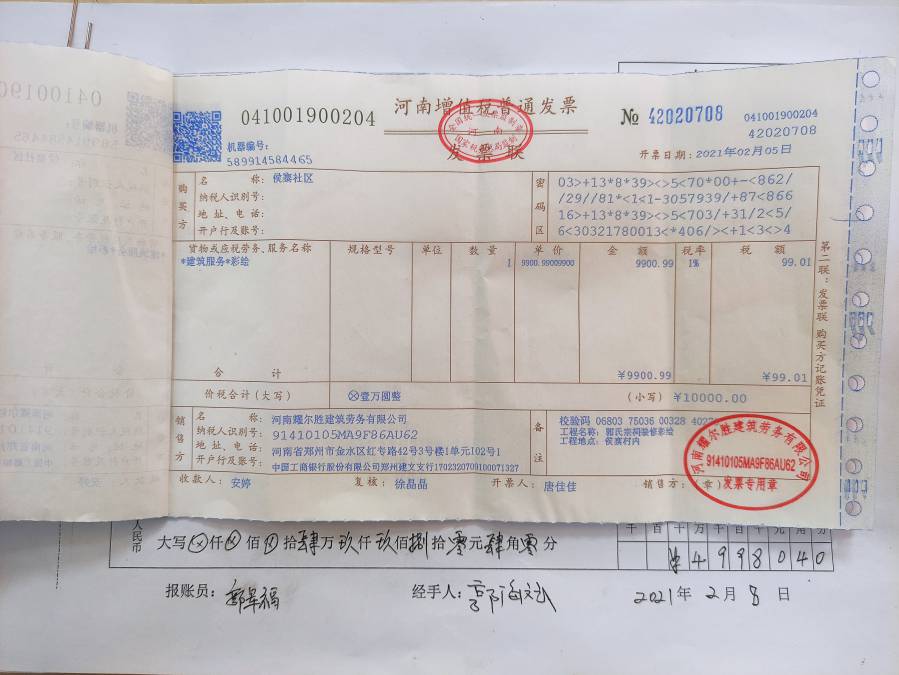 河南增值税普通发票
041001900204
№ 42020708
041001900204
42020708
机器编号:
589914584465
全国统一发票监制章
河南
国家税务总局监制
发票联
开票日期: 2021年02月05日
购买方
名 称: 侯寨社区
纳税人识别号:
地 址、电 话:
开户行及账号:
密码区
03>+13*8*39><>5<70*00+-<862/
/29//81*<1<1-3057939/+87<866
16>+13*8*39><>5<703/+31/2<5/
6<30321780013<*406/><+1<3><4
货物或应税劳务、服务名称 规格型号 单位 数 量 单 价 金 额 税率 税 额
*建筑服务*彩绘 1 9900.99009900 9900.99 1% 99.01
合 计 ¥9900.99 ¥99.01
价税合计(大写) ⊗壹万圆整 (小写) ¥10000.00
销售方
名 称: 河南耀尔胜建筑劳务有限公司
纳税人识别号: 91410105MA9F86AU62
地 址、电 话: 河南省郑州市金水区红专路42号3号楼1单元102号1
开户行及账号: 中国工商银行股份有限公司郑州建文支行1702320709100071327
备注
校验码 06803 75036 00328
工程名称: 郭氏宗祠装修彩绘
工程地点: 侯寨村内
收款人: 安婷 复核: 徐晶晶 开票人: 唐佳佳 销售方:(章)
河南耀尔胜建筑劳务有限公司
91410105MA9F86AU62
发票专用章
第二联:发票联 购买方记账凭证
人民币
大写 ⊗仟⊗佰⊗拾肆万玖仟玖佰捌拾零元肆角零分
千百十万千百十元角分
¥4998040
报账员:
经手人:
2021年2月8日